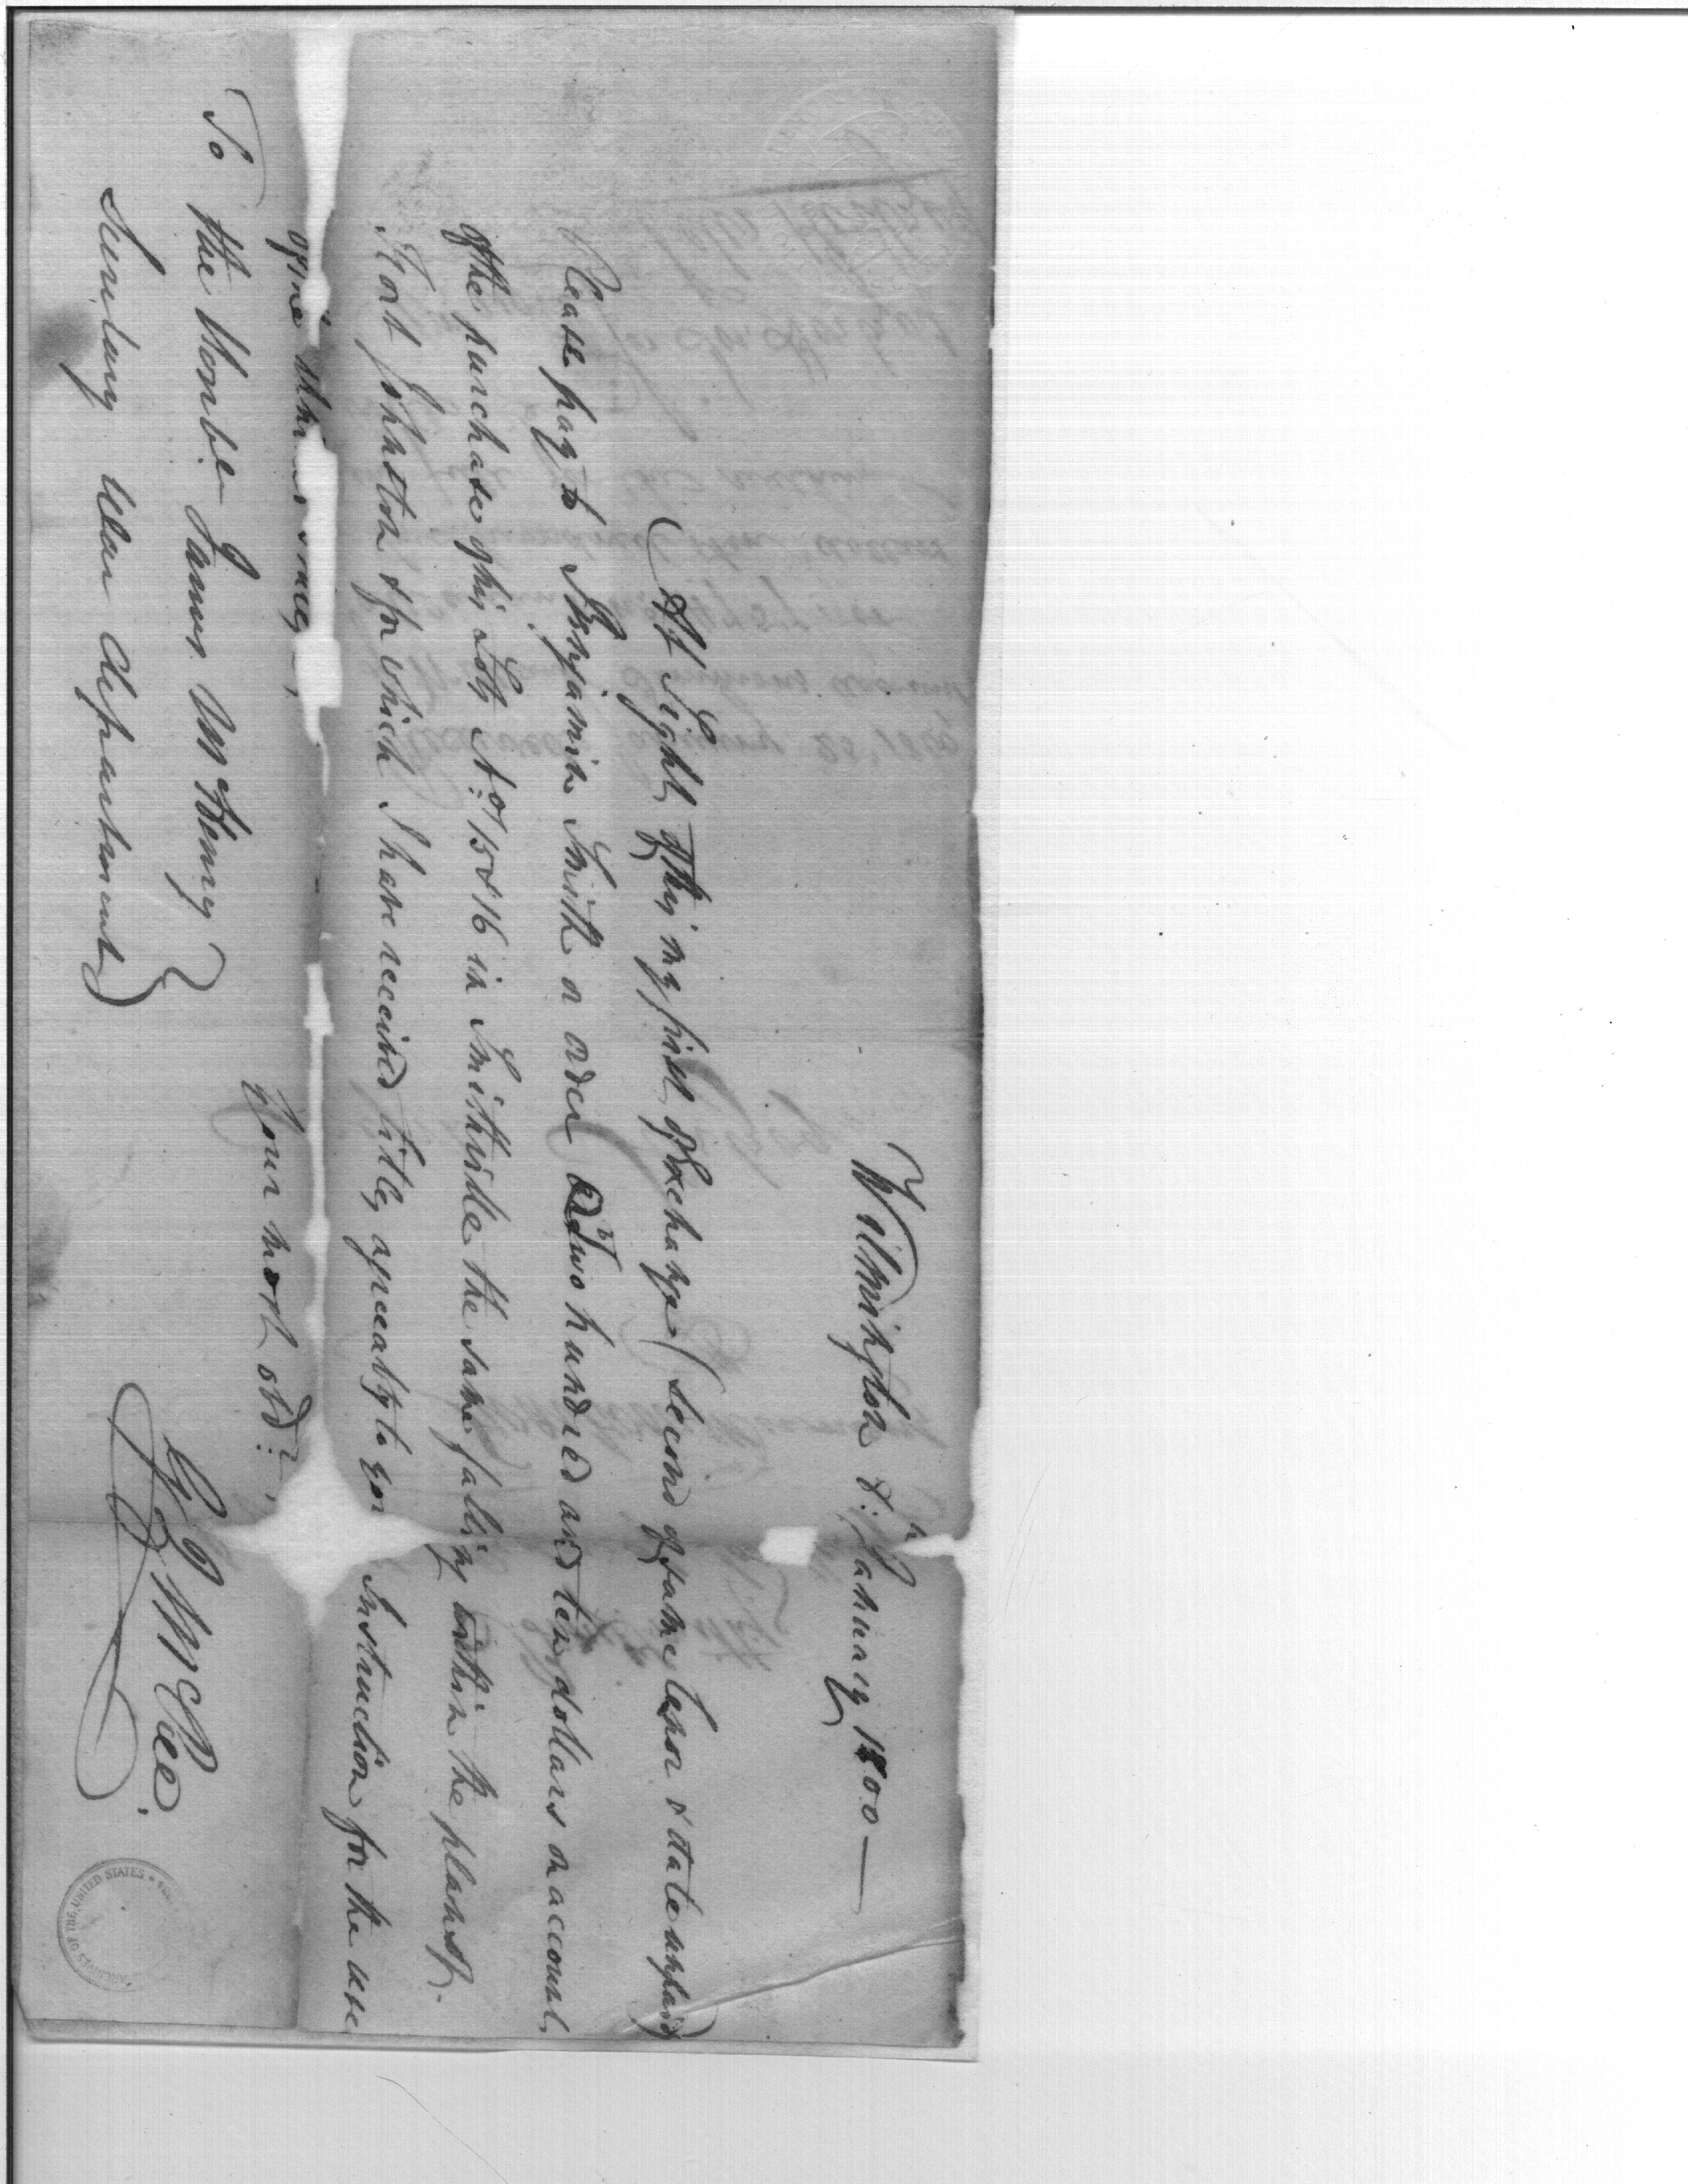 Wilmington 8th January 1800—
At Sight of this my first of Exchange (second of same tenor & date unpaid)
Please pay to Benjamin Smith or order two hundred and ten dollars on account
of the purchase of his Lots No. 15 & 16 in Smithville the same falling within the plans of
Fort Johnston & for which I have received titles agreeably to your Instruction for the use
of the
Your most obdt.
To the Honble James McHenry
Secretary War department
G J McRee.
ARCHIVES OF THE UNITED STATES